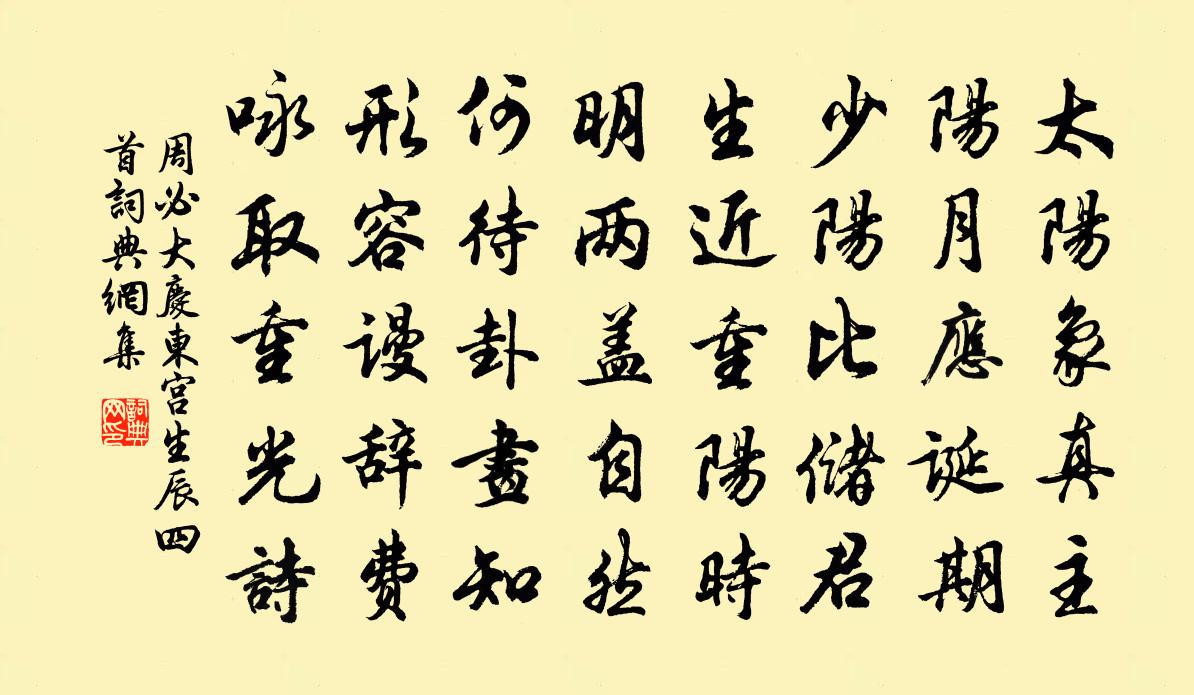 太陽象真主
陽月應誕期
少陽比儲君
生近重陽時
明两盖自然
何待卦畫知
形容謾辞費
咏取重光詩
周必大慶東宮生辰四
首詞典網集
詞典
网印